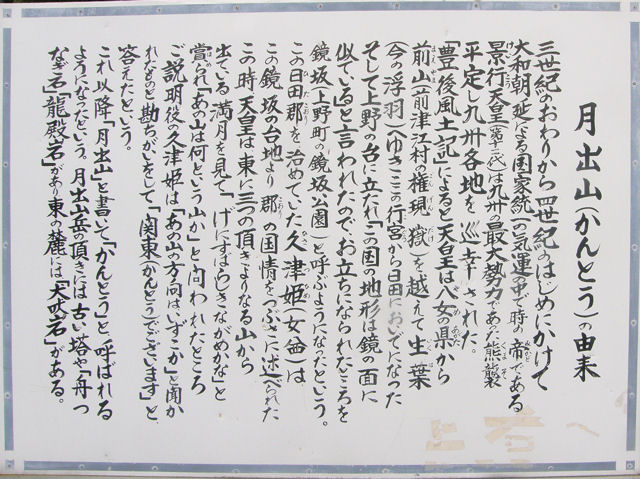 月出山(かんとう)の由来
三世紀のおわりから四世紀のはじめにかけて
大和朝廷による国家統一の気運の中で時の帝である
景行天皇(第十二代)は九州の最大勢力であった熊襲を
平定し九州各地を巡幸された。
「豊後風土記」によると天皇は八女の県から
前山(前津江村の権現嶽)を越えて生葉
(今の浮羽)へゆきここの行宮から日田においでになった
そして上野の台に立たれ「この国の地形は鏡の面に
似ている」と言われたのでお立ちになられたところを
鏡坂(上野町の鏡坂公園)と呼ぶようになったという。
この日田郡を治めていた久津姫(女酋)は
この鏡坂の台地より郡の国情をつぶさに述べられた
この時天皇は東に三つの頂きよりなる山から
出ている満月を見て「げにすばらしきながめかな」と
賞られ「あの山は何という山か」と問われたところ
ご説明役の久津姫は「あの山の方向はいずこか」と聞か
れたものと勘ちがいをして「関東(かんとう)でございます」と
答えたという。
これ以降「月出山」と書いて「かんとう」と呼ばれる
ようになったという。月出山岳の頂きには古い塔や「舟つ
なぎ石」「龍殿岩」があり東の麓には「犬吠岩」がある。